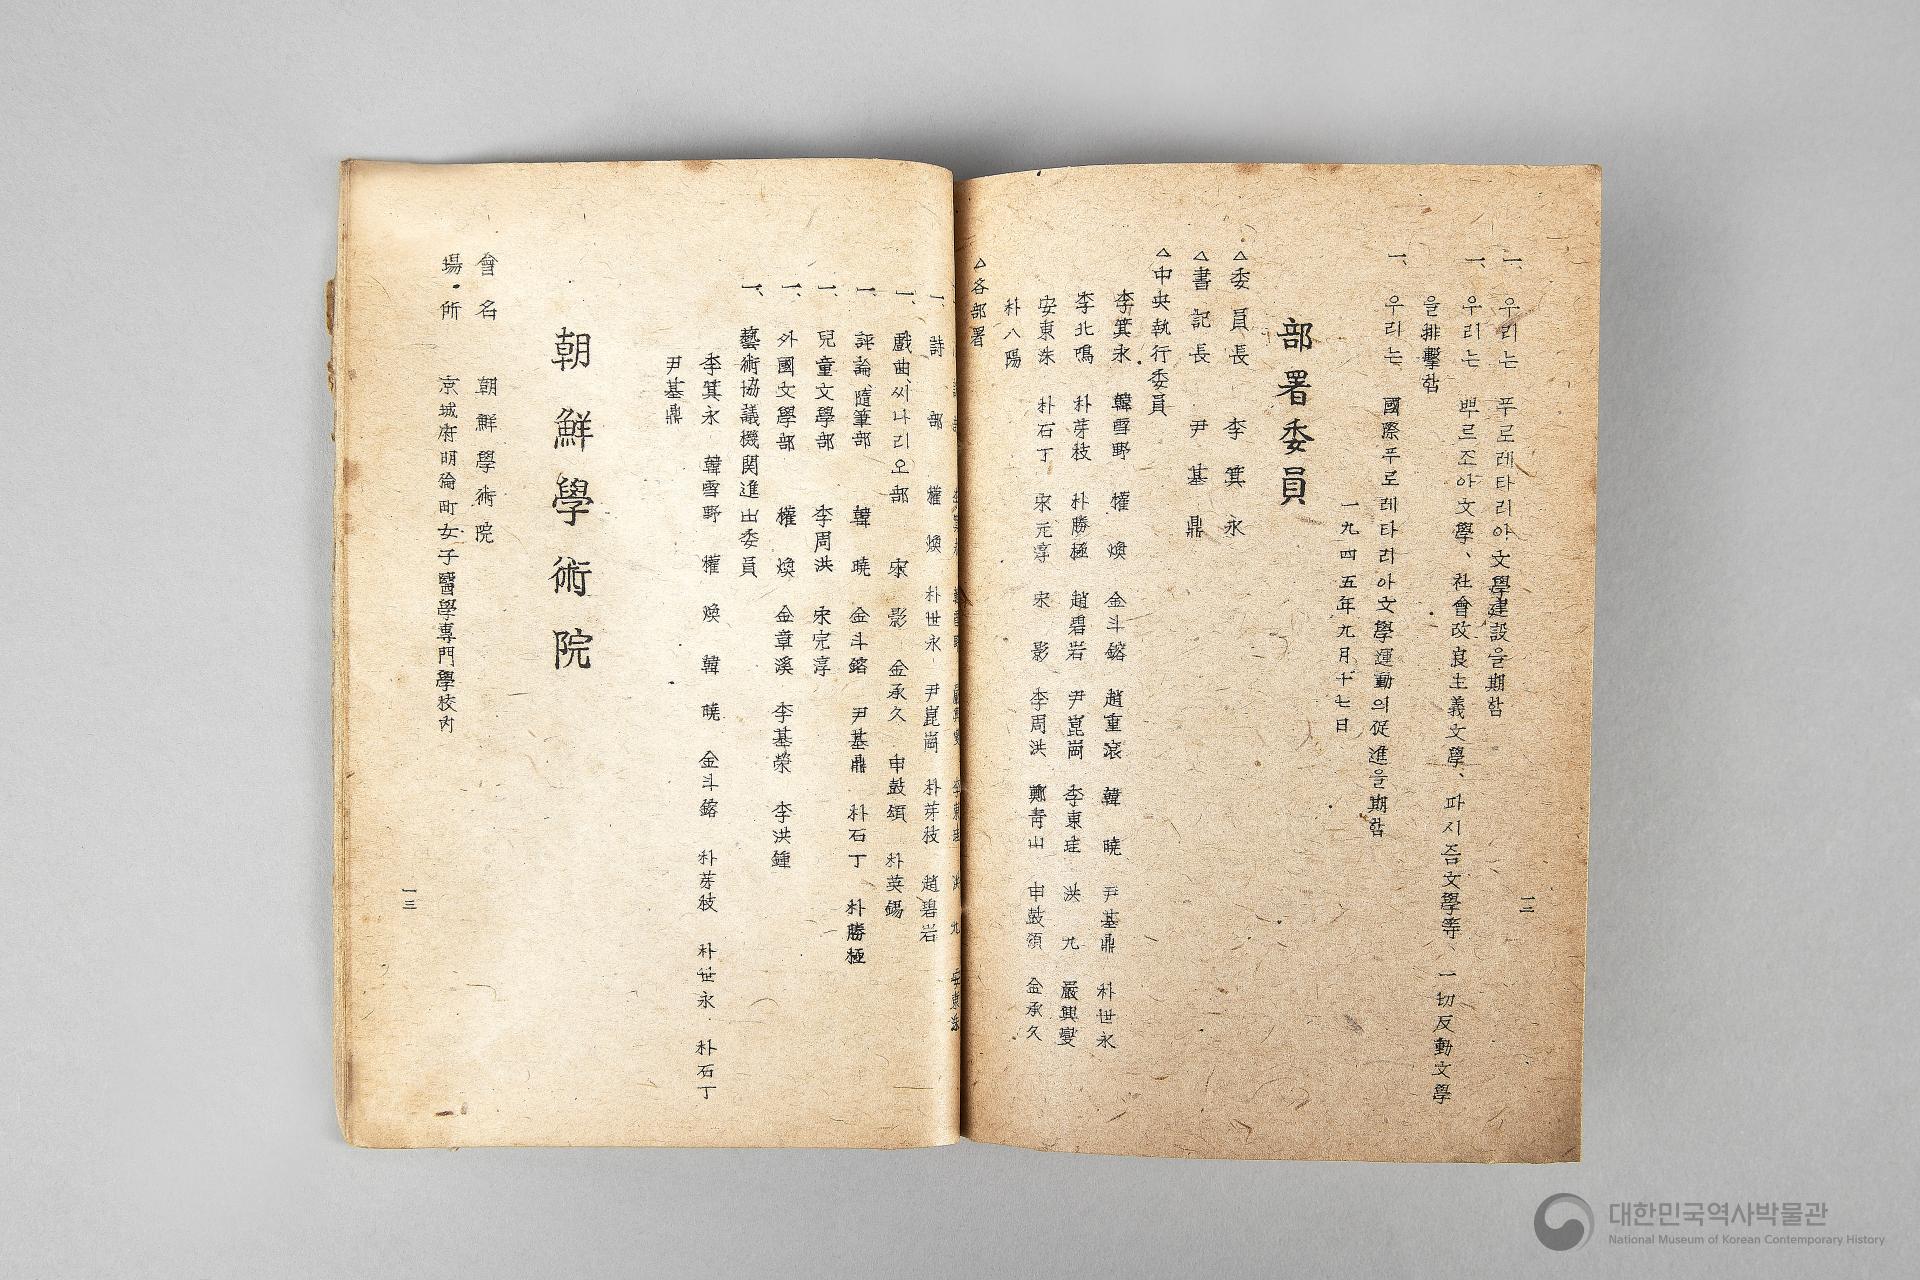 一、 우리는 푸로레타리아文學建設을期함
一、 우리는 뿌르조아文學、社會改良主義文學、파시즘文學等、一切反動文學
을排擊함
一、 우리는 國際푸로레타리아文學運動의促進을期함
一九四五年九月十七日
部署委員
△委員長 李箕永
△書記長 尹基鼎
△中央執行委員
李箕永 韓雪野 權煥 金斗鎔 趙重滾 韓曉 尹基鼎 朴世永
李北鳴 朴芽枝 朴勝極 趙碧岩 尹崑崗 李東珪 洪九 嚴興燮
安東洙 朴石丁 宋完淳 宋影 李周洪 鄭青山 申鼓頌 金承久
朴八陽
△各部署
一二
一、詩部 權煥 朴世永 尹崑崗 朴芽枝 趙碧岩
一、戲曲씨나리오部 宋影 金承久 申鼓頌 朴英錫
一、評論隨筆部 韓曉 金斗鎔 尹基鼎 朴石丁 朴勝極
一、兒童文學部 李周洪 宋完淳
一、外國文學部 權煥 金章溪 李基榮 李洪鍾
一、藝術協議機関進出委員
李箕永 韓雪野 權煥 韓曉 金斗鎔 朴芽枝 朴世永 朴石丁
尹基鼎
朝鮮學術院
會名 朝鮮學術院
場所 京城府明倫町女子醫學專門學校內
一三
대한민국역사박물관
National Museum of Korean Contemporary History